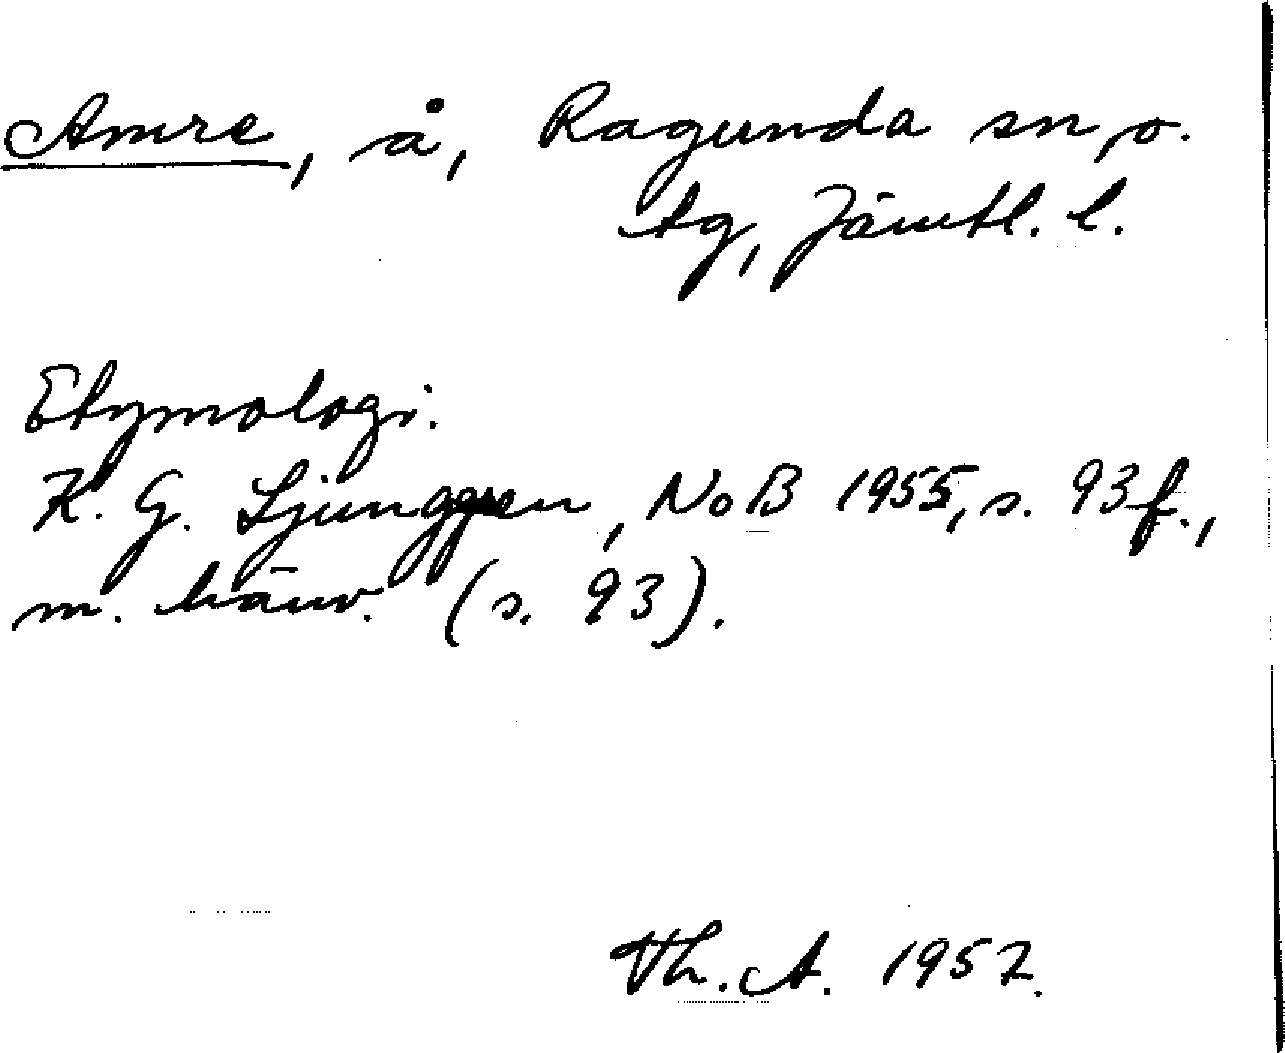 Amre, å, Ragunda sn, o.
tg, Jämtl. l.
Etymologi.
K. G. Ljunggren, NoB 1955, s. 93 f.,
m. hänv. (s. 93).
Th. A. 1957.